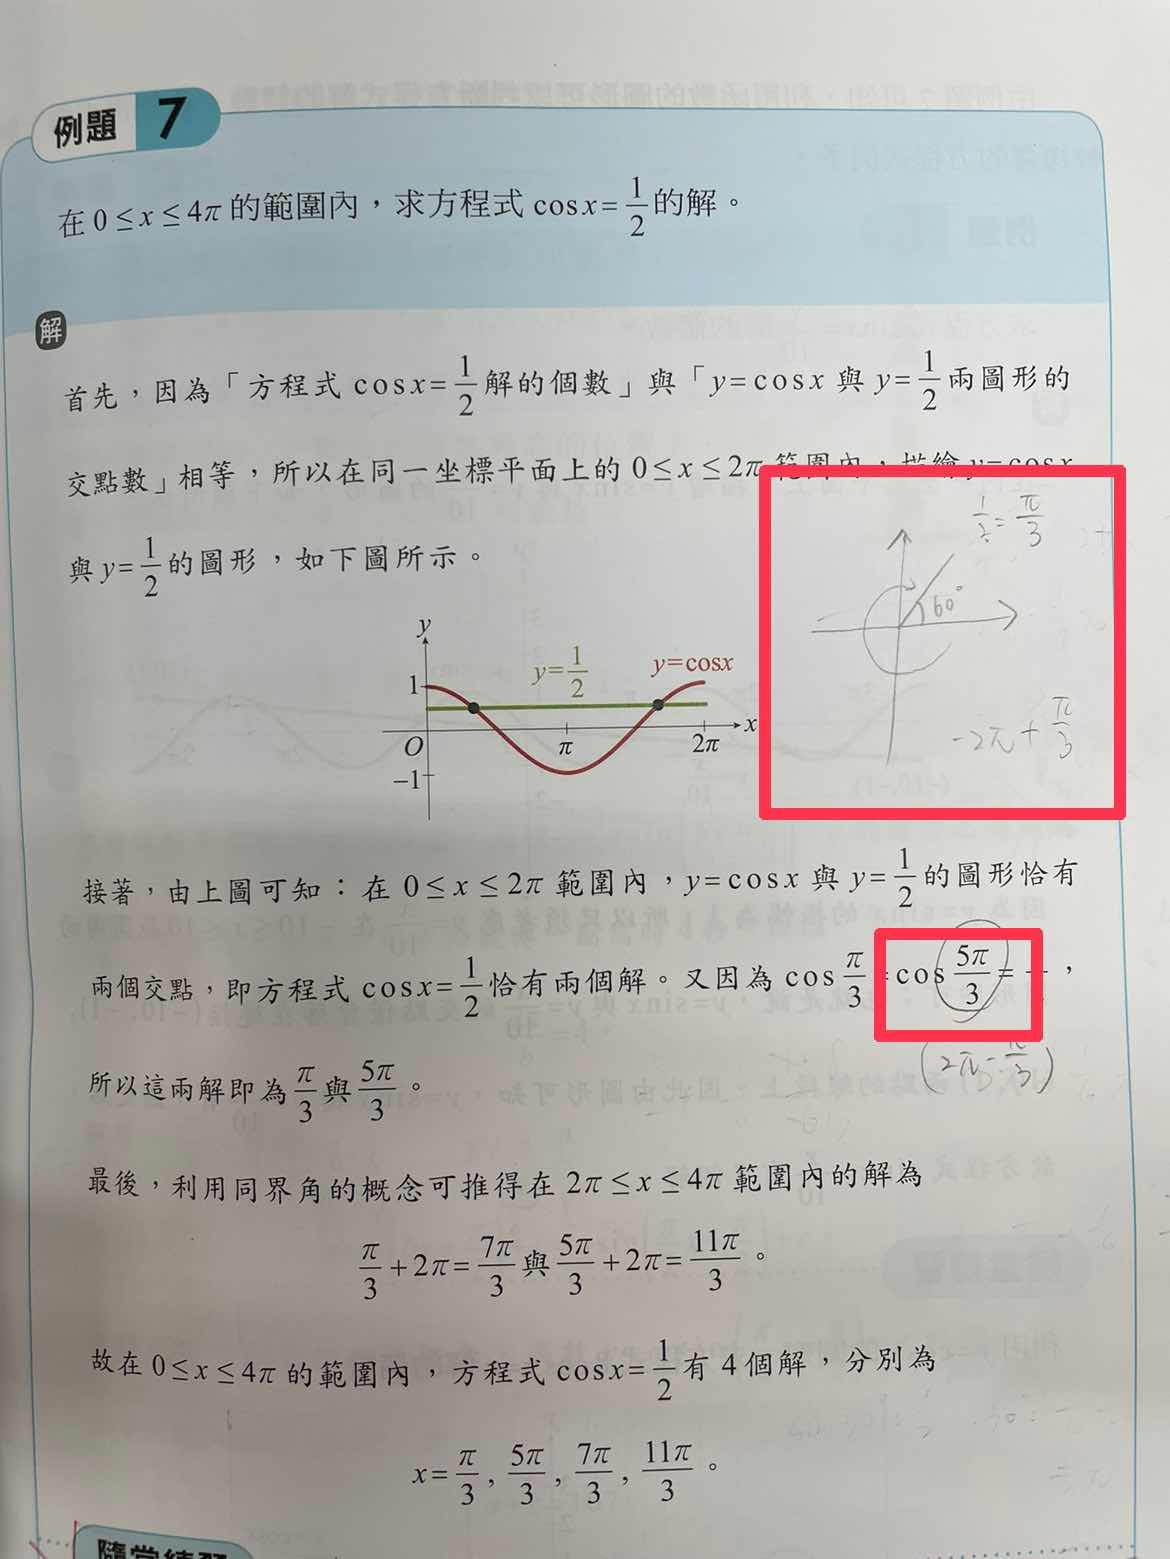 例題 7
在 0≤x≤4π 的範圍內，求方程式 cosx=1/2 的解。
解
首先，因為「方程式 cosx=1/2 解的個數」與「y=cosx 與 y=1/2 兩圖形的
交點數」相等，所以在同一坐標平面上的 0≤x≤2π 範圍內，描繪 y=cosx
與 y=1/2 的圖形，如下圖所示。
1/2=π/3
60°
-2π+π/3
y
y=1/2
y=cosx
1
O
π
2π
x
-1
接著，由上圖可知：在 0≤x≤2π 範圍內，y=cosx 與 y=1/2 的圖形恰有
兩個交點，即方程式 cosx=1/2 恰有兩個解。又因為 cos π/3 =cos 5π/3 =
，
(2π-π/3)
所以這兩解即為 π/3 與 5π/3。
最後，利用同界角的概念可推得在 2π≤x≤4π 範圍內的解為
π/3+2π=7π/3 與 5π/3+2π=11π/3。
故在 0≤x≤4π 的範圍內，方程式 cosx=1/2 有 4 個解，分別為
x=π/3, 5π/3, 7π/3, 11π/3。
隨堂練習